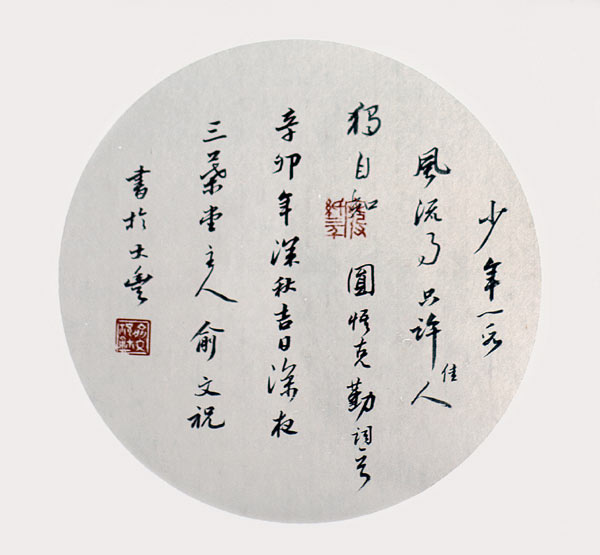 少年一段
風流事只許佳人
獨自知 圓悟克勤詞
辛卯年深秋吉日深夜
三葉堂主人俞文祝
書於大豐